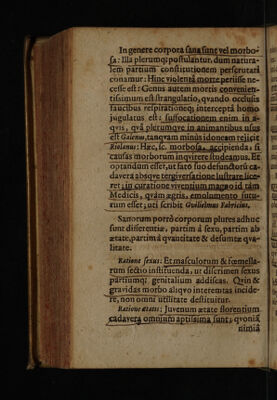 In genere corpora sana sunt vel morbo-
sa: Illa plerumq; postulantur, dum natura-
lem partium constitutionem perscrutari
conamur: Hinc violentâ morte periisse ne-
cesse est: Genus autem mortis convenien-
tissimum est strangulatio, quando occlusis
faucibus respirationeq; interceptâ homo
jugulatus est: suffocationem enim in a-
quis, quâ plerumque in animantibus usus
est Galenus, tanquam minùs idoneam relicit
Riolanus: Hæc, sc. morbosa, accipienda, si
causas morborum inquirere studeamus. Et
optandum esset, ut fato suo defunctorũ ca-
davera absque tergiversatione lustrare lice-
ret: in curatione viventium magno id tàm
Medicis, quàm ægris, emolumento futu-
rum esset; uti scribit Guilielmus Fabricius.
Sanorum porrò corporum plures adhuc
sunt differentiæ, partim â sexu, partim ab
ætate, partim â quantitate & demum qua-
litate.
Ratione sexus: Et masculorum & fœmella-
rum sectio instituenda, ut discrimen sexus
partiumq; genitalium addiscas. Quin &
gravidas morbo aliquo interemtas incide-
re, non omni utilitate destituitur.
Ratione ætatis: Juvenum ætate florentium
cadavera omnium aptissima sunt; quoniã
nimiâ